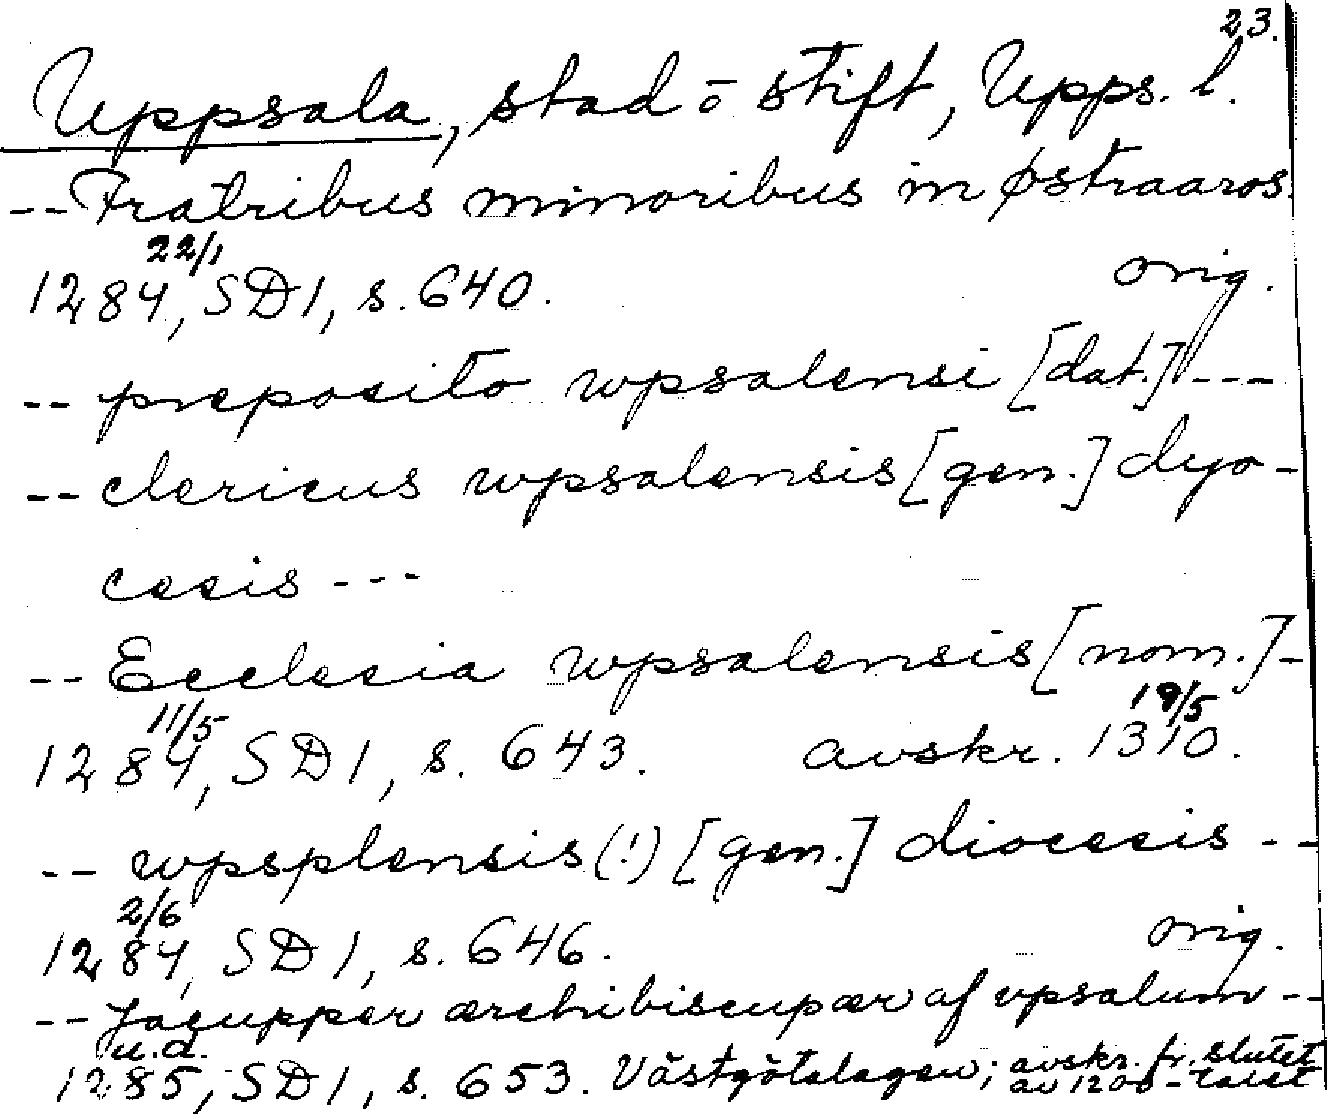 23.
Uppsala, stad o stift, Upps. l.
-- Fratribus minoribus in østraaros.
22/1
1284, SD1, s. 640. orig.
-- preposito wpsalensi [dat.] ---
-- clericus wpsalensis [gen.] dyo-
cesis ---
-- Ecclesia wpsalensis [nom.] -
11/5 19/5
1284, SD1, s. 643. avskr. 1310.
-- wpsplensis (!) [gen.] diocesis --
2/6
1284, SD1, s. 646. orig.
-- Jacupper ærchibiscupær af upsalum --
u.d.
1285, SD1, s. 653. Västgötalagen; avskr. fr. slutet
av 1200-talet